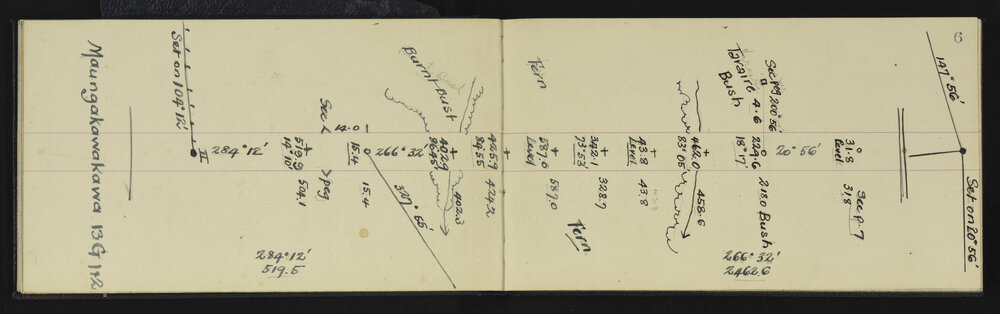 Maungakawakawa 13G 1+2
Set on 104°12'
II
284°12'
519.9
14°10'
504.1
284°12'
519.5
Sec
14.01
> peg
15.4
15.4
266°32'
327°55'
Burnt Bush
402.9
86°45'
402.3
425.9
84°55'
424.2
Fern
587.0
Level
587.0
342.1
73°53'
328.7
Fern
43.8
Level
43.8
462.0
83°05'
458.6
Taraire 4.6
Bush
Sec peg 200°56'
224.6
218.0 Bush
20°56'
266°32'
2462.6
31.8
Level
31.8
See p. 7
6
147°56'
Set on 20°56'